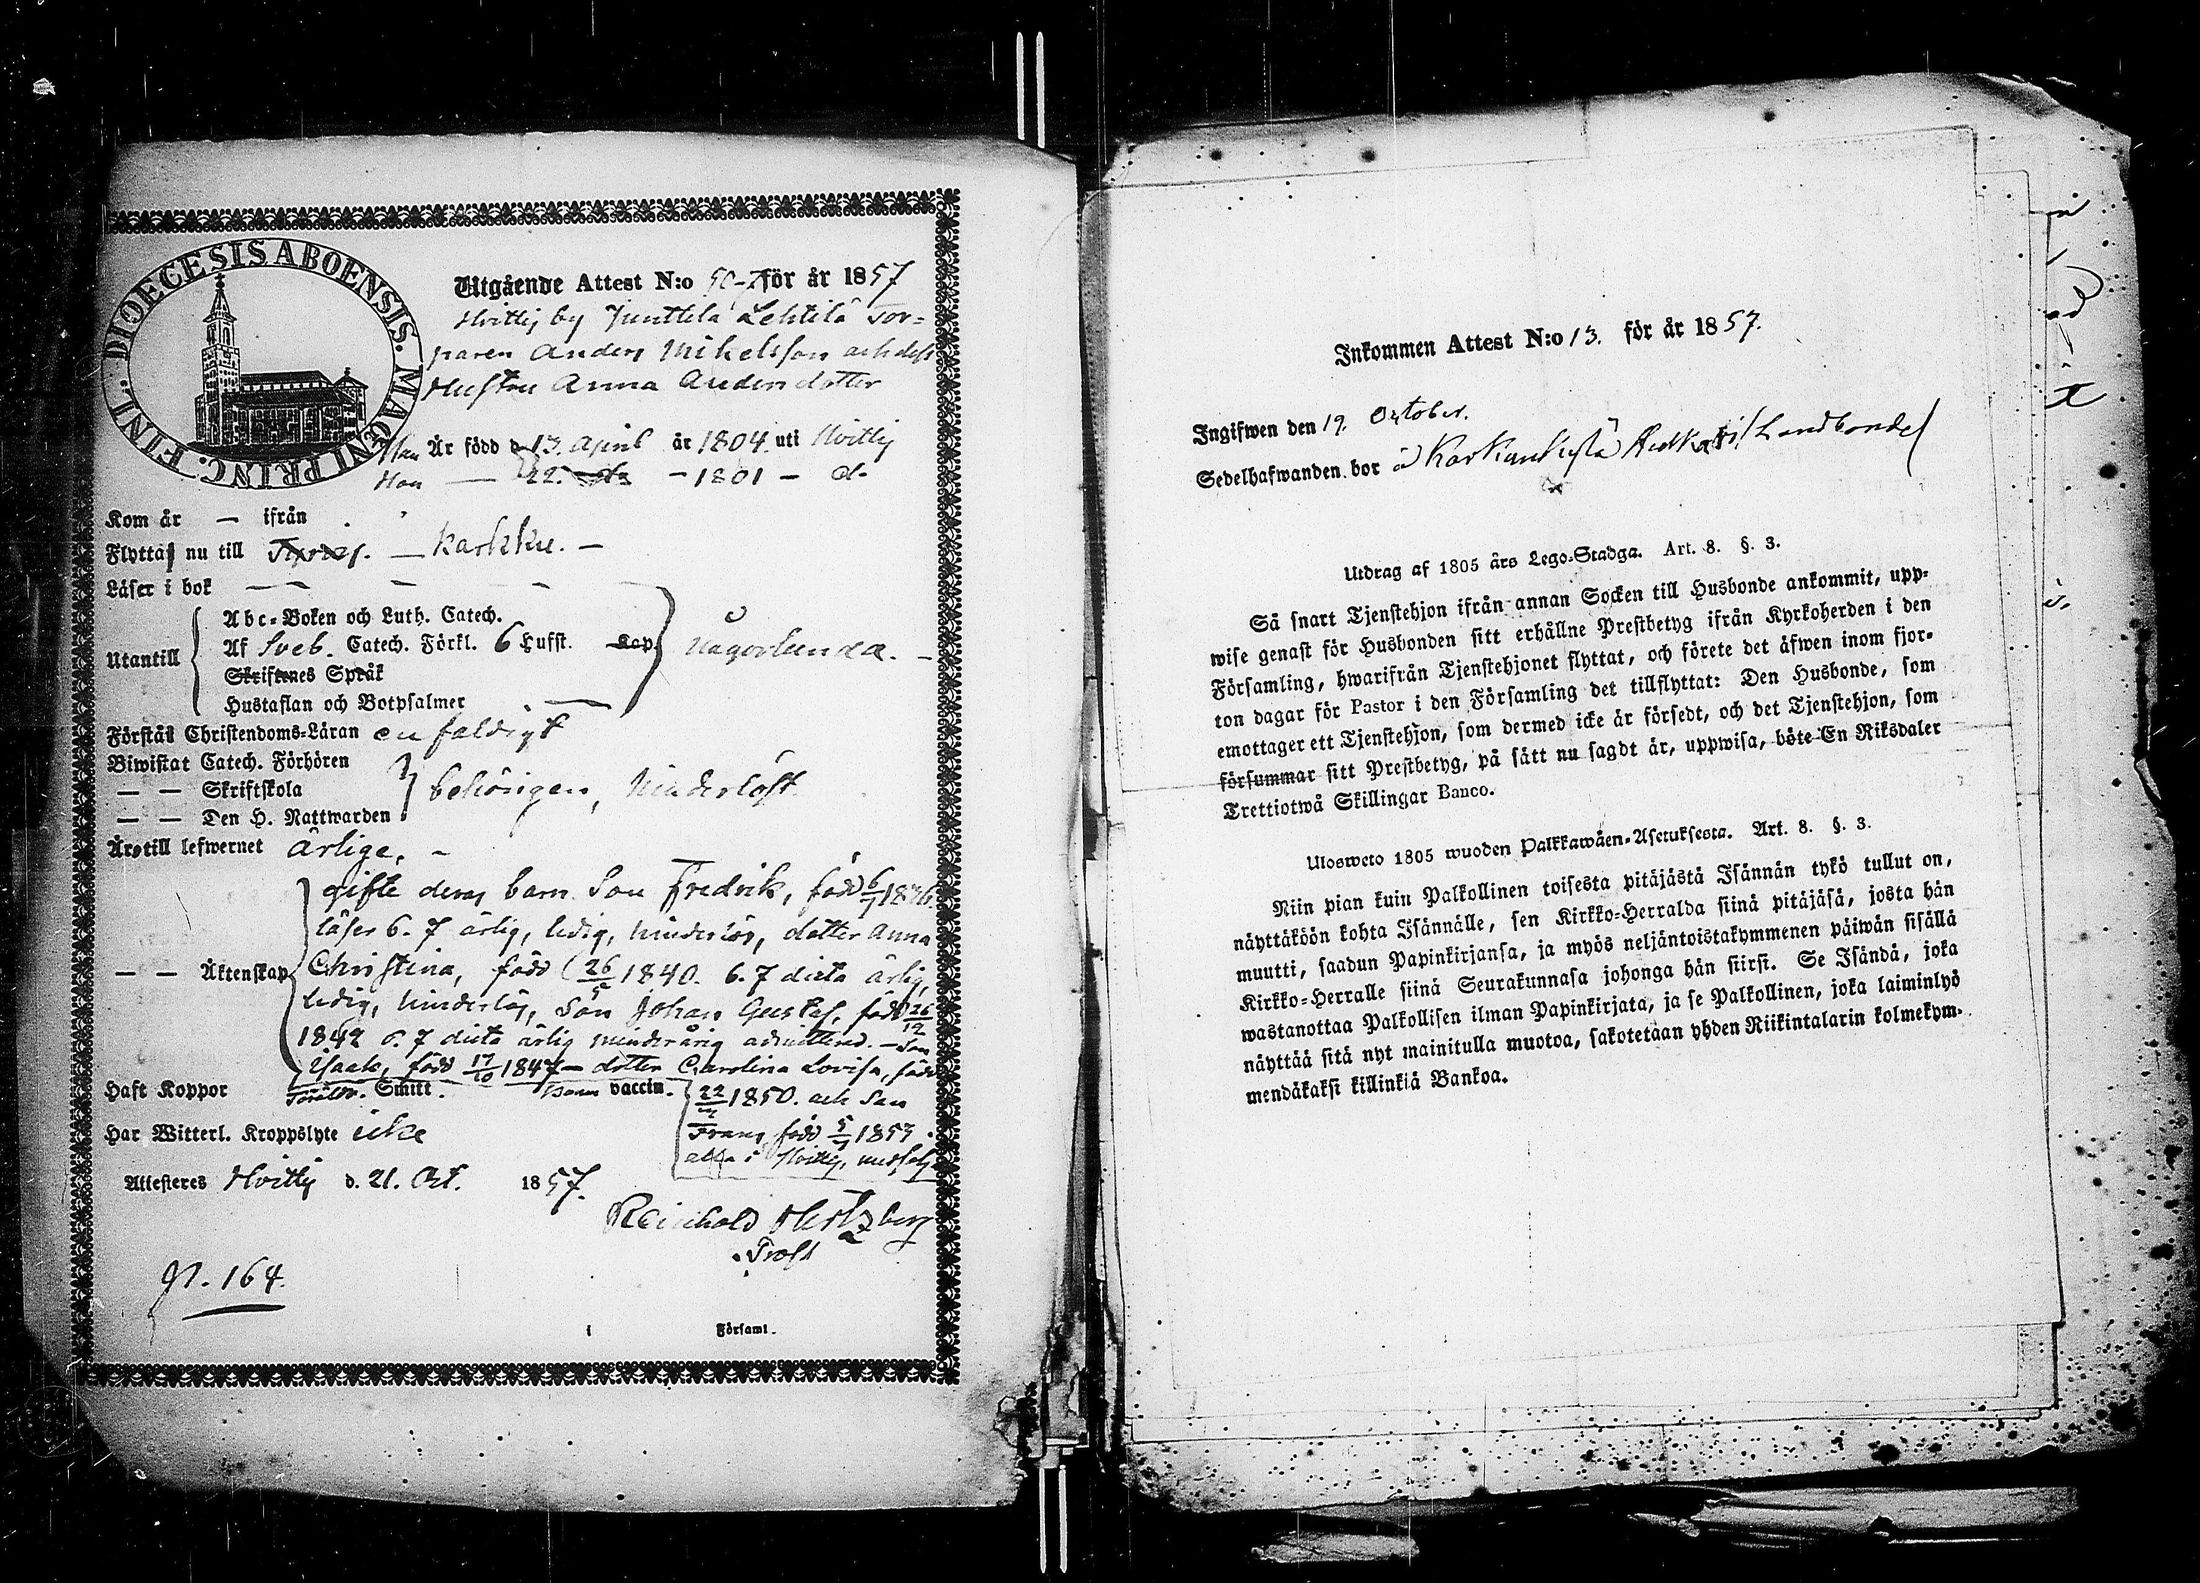 DIOECESIS ABOENSIS. MAGNI PRINC. FINL.
Utgående Attest N:o för år 1857
Hvittis by Junttila Lehtilä Tor-
paren Anders Mikelsson och dess
Hustru Anna Andersdotter
Han Är född d 13. April år 1804. uti Hvittis
Hon — 22. — 1801 — do
Kom år — ifrån
Flyttas nu till — Karkku. —
Läser i bok — — —
Abc-Boken och Luth. Catech.
Utantill Af Sveb. Catech. Förkl. 6 Hufst. Kap. någorlunda. —
Skriftenes Språk
Hustaflan och Botpsalmer —
Förstår Christendoms-Läran enfaldigt
Biwistat Catech. Förhören
— — Skriftskola behörigen, hinderlöst.
— — Den H. Nattwarden
Är till lefwernet ärlige. —
gifte deras barn Son Fredrik, född 6/7 1836.
läser 6. 7 ärlig, ledig, hinderlös, dotter Anna
— — Äktenskap Christina, född 26/5 1840. 6. 7 dicta ärlig,
ledig, hinderlös, Son Johan Gustaf, född 26/12
1842 6. 7 dicta ärlig minderårig admitterad. — Son
Isaak, född 17/10 1847 — dotter Carolina Lovisa, född
Haft Koppor föräldr. Smitt. barn vaccin. 22/11 1850. och Son
Frans född 5/7 1853.
Har Witterl. Kroppslyte icke
alla i Hvittis, medfölj
Attesteres Hvittis d. 21. Oct. 1857.
Reinhold Hertzberg
Prost
P. 164.
i Församl.
Inkommen Attest N:o 13. för år 1857.
Ingifwen den 19. October.
Sedelhafwanden bor å Karkunkylä Landbonde
Utdrag af 1805 års Lego-Stadga. Art. 8. §. 3.
Så snart Tjenstehjon ifrån annan Socken till Husbonde ankommit, upp-
wise genast för Husbonden sitt erhållne Prestbetyg ifrån Kyrkoherden i den
Församling, hwarifrån Tjenstehjonet flyttat, och förete det äfwen inom fjor-
ton dagar för Pastor i den Församling det tillflyttat: Den Husbonde, som
emottager ett Tjenstehjon, som dermed icke är försedt, och det Tjenstehjon, som
försummar sitt Prestbetyg, på sätt nu sagdt är, uppwisa, böte En Riksdaler
Trettiotwå Skillingar Banco.
Uloswéto 1805 wuoden Palkkawäen-Asetuksesta. Art. 8. §. 3.
Niin pian kuin Palkollinen toisesta pitäjästä Isännän tykö tullut on,
näyttäköön kohta Isännälle, sen Kirkko-Herralda siinä pitäjäsä, josta hän
muutti, saadun Papinkirjansa, ja myös neljäntoistakymmenen päiwän sisällä
Kirkko-Herralle siinä Seurakunnasa johonga hän siirsi. Se Isändä, joka
wastanottaa Palkollisen ilman Papinkirjata, ja se Palkollinen, joka laiminlyö
näyttää sitä nyt mainitulla muotoa, sakotetaan yhden Riikintalarin kolmekym-
mendäkaksi killinkiä Bankoa.